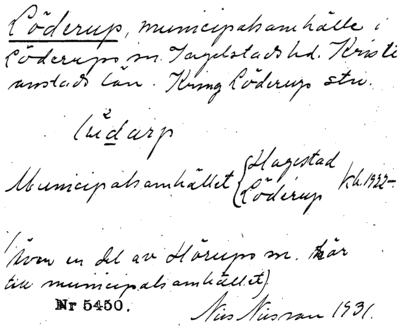 Löderup, municipalsamhälle i
Löderups sn. Ingelstads hd. Kristi-
anstads län. Kring Löderup stn.
lǘdarp
Municipalsamhället { Hagestad
Löderup } kk. 1922–
(Även en del av Hörups sn. hör
till municipalsamhället)
Nr 5450.
Nils Nilsson 1931.